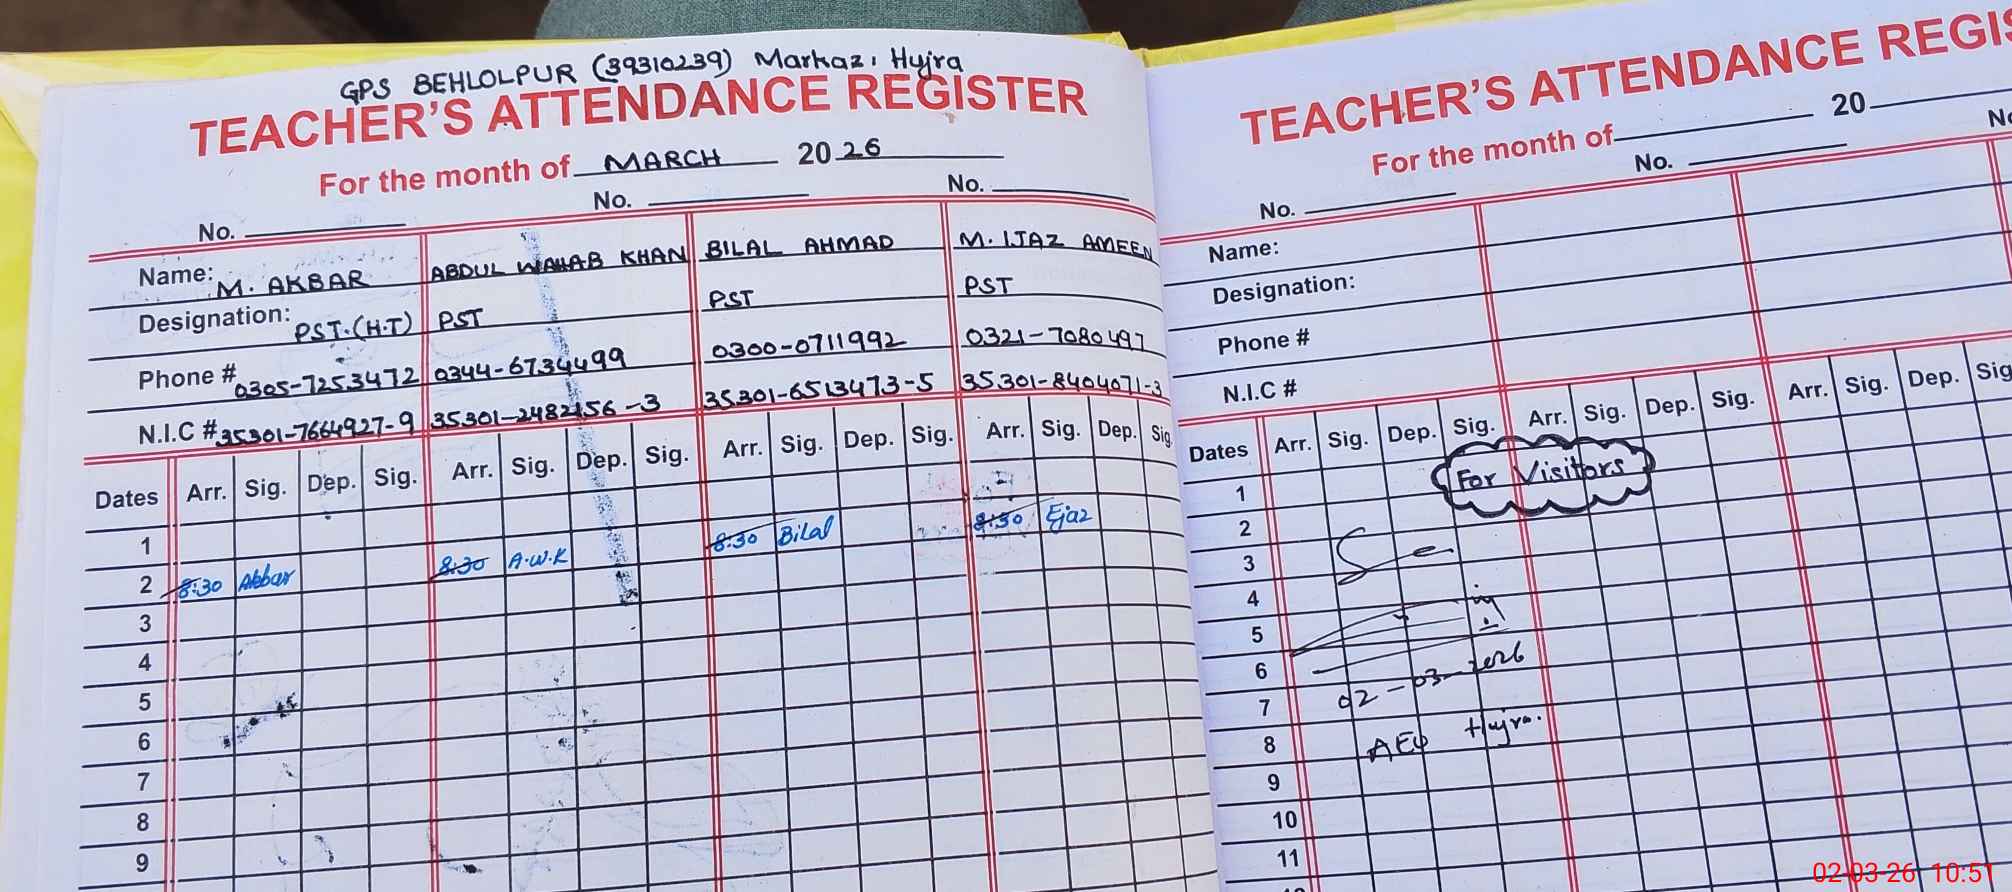 GPS BEHLOLPUR (39310239) Markaz: Hujra
TEACHER'S ATTENDANCE REGISTER
For the month of MARCH 2026
No. No. No.
Name: M. AKBAR ABDUL WAHAB KHAN BILAL AHMAD M. IJAZ AMEEN
Designation: PST.(H.T) PST PST PST
Phone # 0305-7253472 0344-6734499 0300-0711992 0321-7080497
N.I.C # 35301-7664927-9 35301-2482156-3 35301-6513473-5 35301-8404071-3
Dates Arr. Sig. Dep. Sig. Arr. Sig. Dep. Sig. Arr. Sig. Dep. Sig. Arr. Sig. Dep. Sig.
1
2 8:30 Akbar 8:30 A.W.K 8:30 Bilal 8:30 Ejaz
3
4
5
6
7
8
9
TEACHER'S ATTENDANCE REGIS
For the month of 20
No. No. No
Name:
Designation:
Phone #
N.I.C #
Dates Arr. Sig. Dep. Sig. Arr. Sig. Dep. Sig. Arr. Sig. Dep. Sig
For Visitors
1
2
3
4
5
6
02-03-2026
7
AEO Hujra.
8
9
10
11
02-03-26 10:51